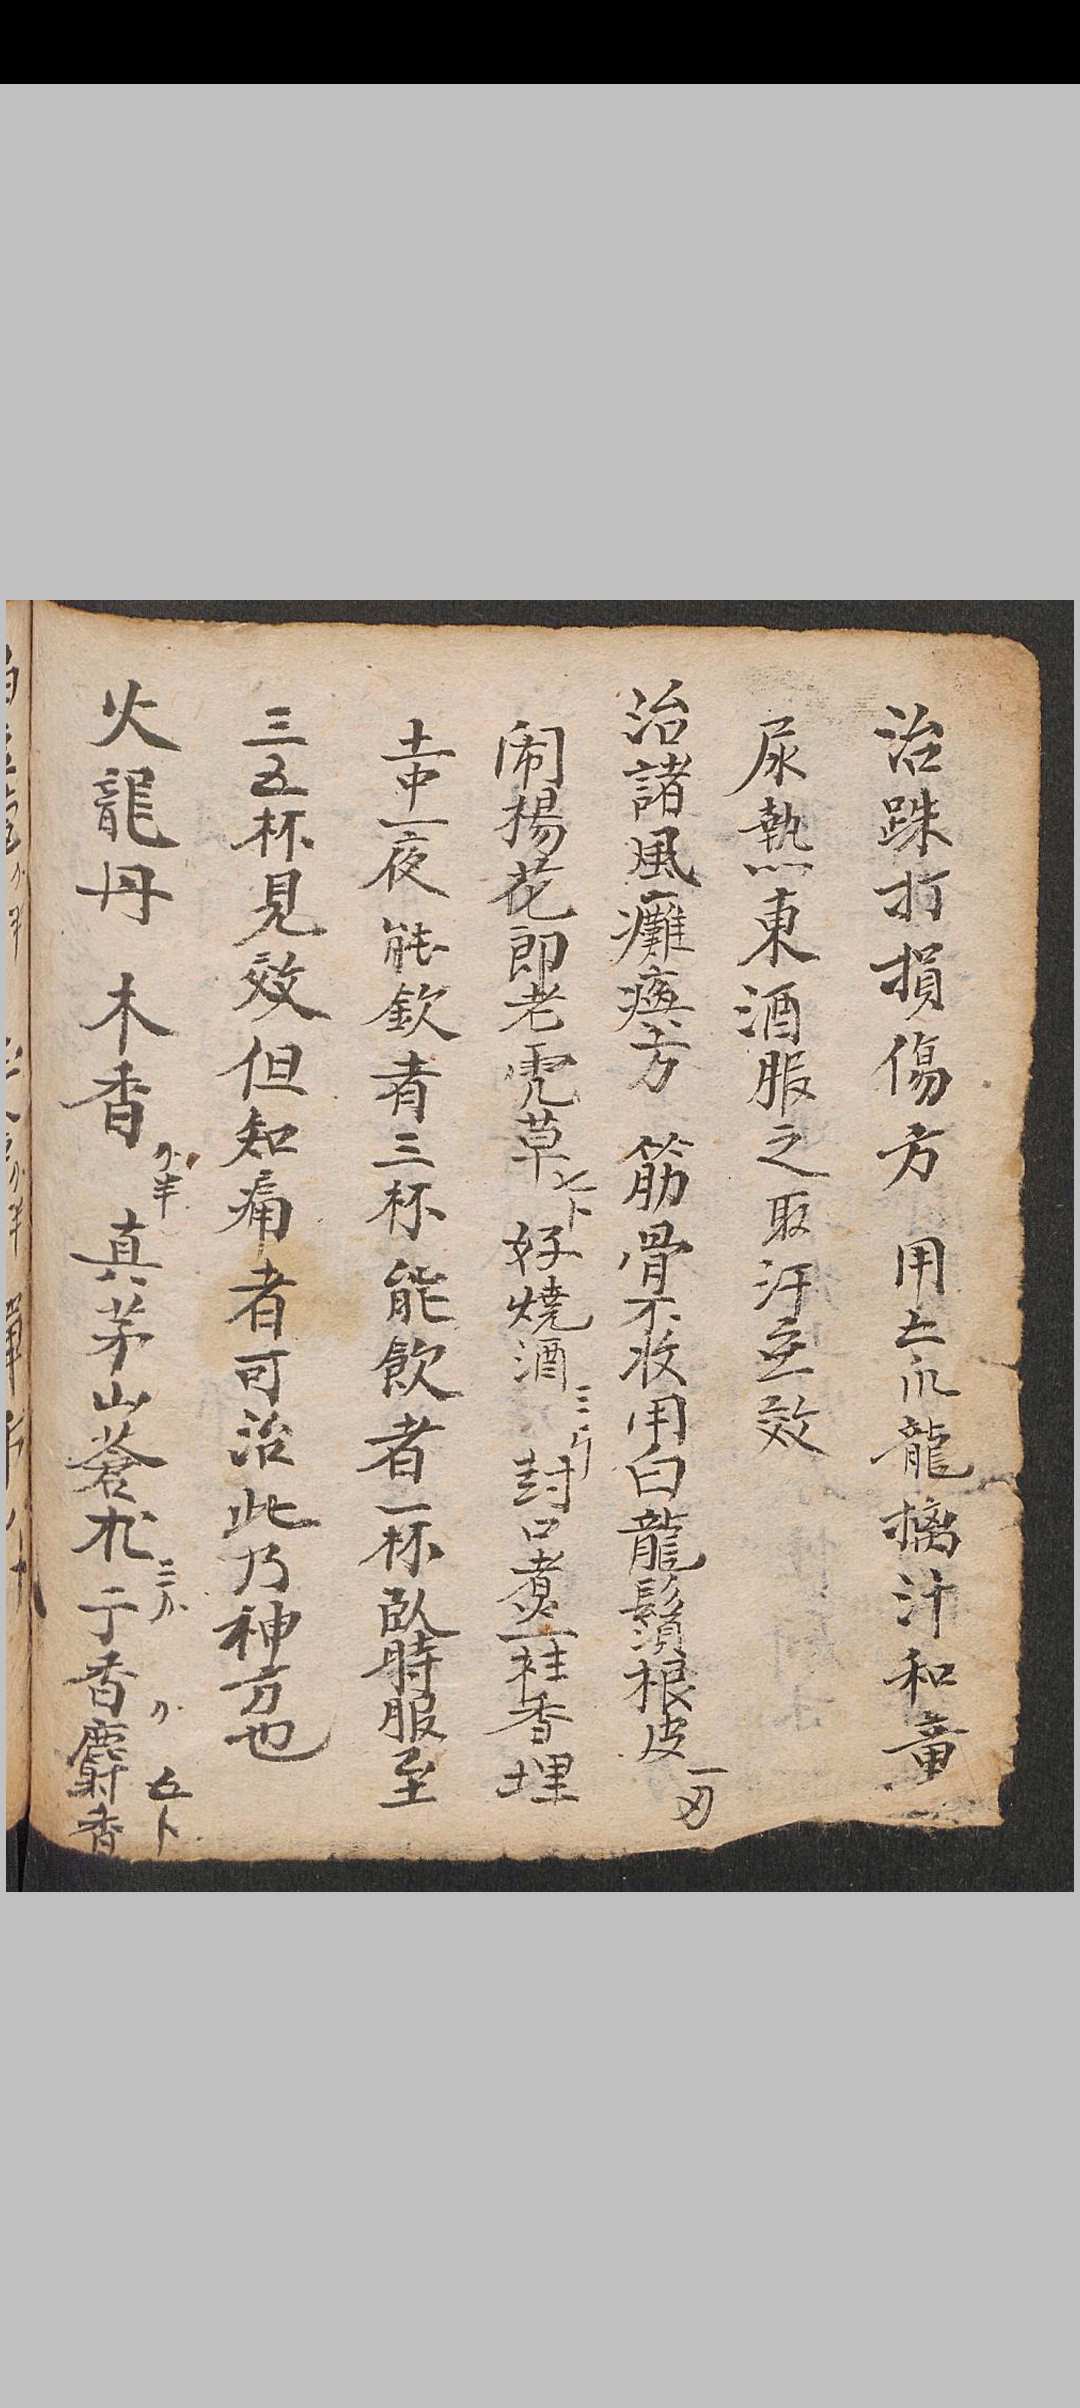 治跌打損傷方 用土爪龍擣汁和童
尿熱東酒服之取汗立效
治諸風癱瘓方 筋骨不收用白龍鬚根皮一刃
闹楊花即老虎草七卜 好燒酒三斤 封口煮一炷香埋
土中一夜 能飲者三杯 能飲者一杯臥時服至
三五杯見效但知痛者可治此乃神方也
火龍丹 木香 半 真茅山蒼朮三 丁香 麝香五卜